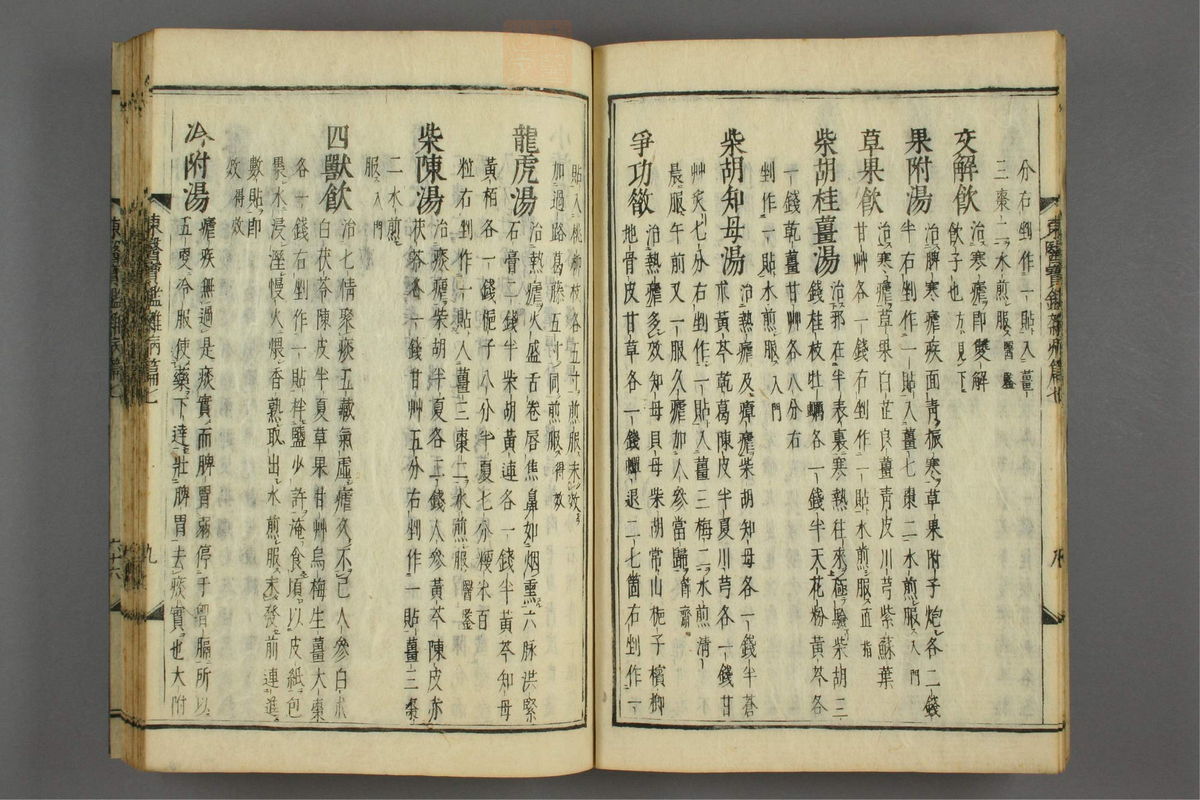 分右剉作一貼入薑
三棗二水煎服醫鑑
交解飮治寒瘧卽雙解
飮子也方見下
果附湯治脾寒瘧疾面靑振寒草果附子炮各二錢
半右剉作一貼入薑七棗二水煎服入門
草果飮治寒瘧草果白芷良薑靑皮川芎紫蘇葉
甘艸各一錢右剉作一貼水煎服直指
柴胡桂薑湯治邪在半表裏寒熱往來極驗柴胡三
錢桂枝牡蠣各一錢半天花粉黃芩各
一錢乾薑甘艸各八分右
剉作一貼水煎服入門
柴胡知母湯治熱瘧及瘴瘧柴胡知母各一錢半蒼
朮黃芩乾葛陳皮半夏川芎各一錢甘
艸炙七分右剉作一貼入薑三梅二水煎淸
晨服午前又一服久瘧加人參當歸
爭功飮治熱瘧多效知母貝母柴胡常山梔子檳榔
地骨皮甘草各一錢蟬退二七箇右剉作一
貼入桃柳枝各五寸煎服未效
加過路葛藤五寸同煎服得效
龍虎湯治熱瘧火盛舌卷唇焦鼻如烟熏六脉洪緊
石膏二錢半柴胡黃連各一錢半黃芩知母
黃栢各一錢梔子八分半夏七分粳米百
粒右剉作一貼入薑三棗二水煎服醫鑑
柴陳湯治痰瘧柴胡半夏各二錢人參黃芩陳皮赤
茯苓各一錢甘艸五分右剉作一貼薑三棗
二水煎
服入門
四獸飮治七情聚痰五藏氣虛瘧久不已人參白朮
白茯苓陳皮半夏草果甘艸烏梅生薑大棗
各一錢右剉作一貼拌鹽少許淹食頃以皮紙包
裹水浸溼慢火煨香熟取出水煎服未發前連進
數貼卽
效得效
冷附湯瘧疾無過是痰實而脾胃弱停于胷膈所以
五更冷服使藥下達壯脾胃去痰實也大附
東醫寶鑑雜病篇七
九